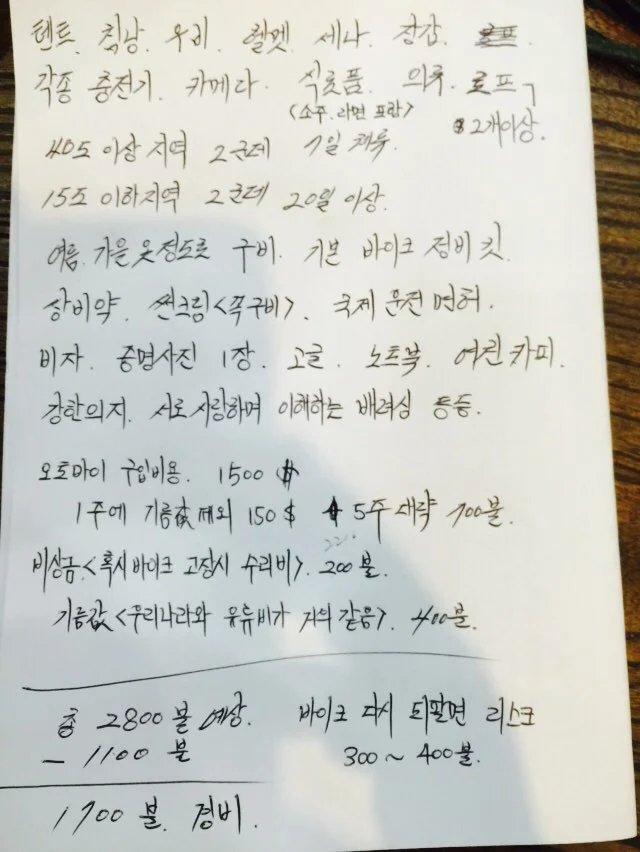 텐트. 침낭. 우비. 헬멧. 세나. 장갑.
각종 충전기. 카메라. 식료품. 의류. 로프
<소주. 라면 포함> 2개이상.
40도 이상 지역 2군데 7일 체류.
15도 이하지역 2군데 20일 이상.
여름. 가을 옷 정도로 구비. 기본 바이크 정비 킷.
상비약. 썬크림<쪽구비>. 국제 운전 면허.
비자. 증명사진 1장. 고글. 노트북. 여권 카피.
강한의지. 서로 사랑하며 이해하는 배려심 등등.
오토바이 구입비용. 1500 $
1주에 기름값 제외 150 $ 5주 대략 700불.
비상금.<혹시 바이크 고장시 수리비>. 200불.
기름값 <우리나라와 유류비가 거의 같음>. 400불.
총 2800불 예상. 바이크 다시 되팔면 리스크
- 1100 불 300 ~ 400불.
1700 불. 경비.